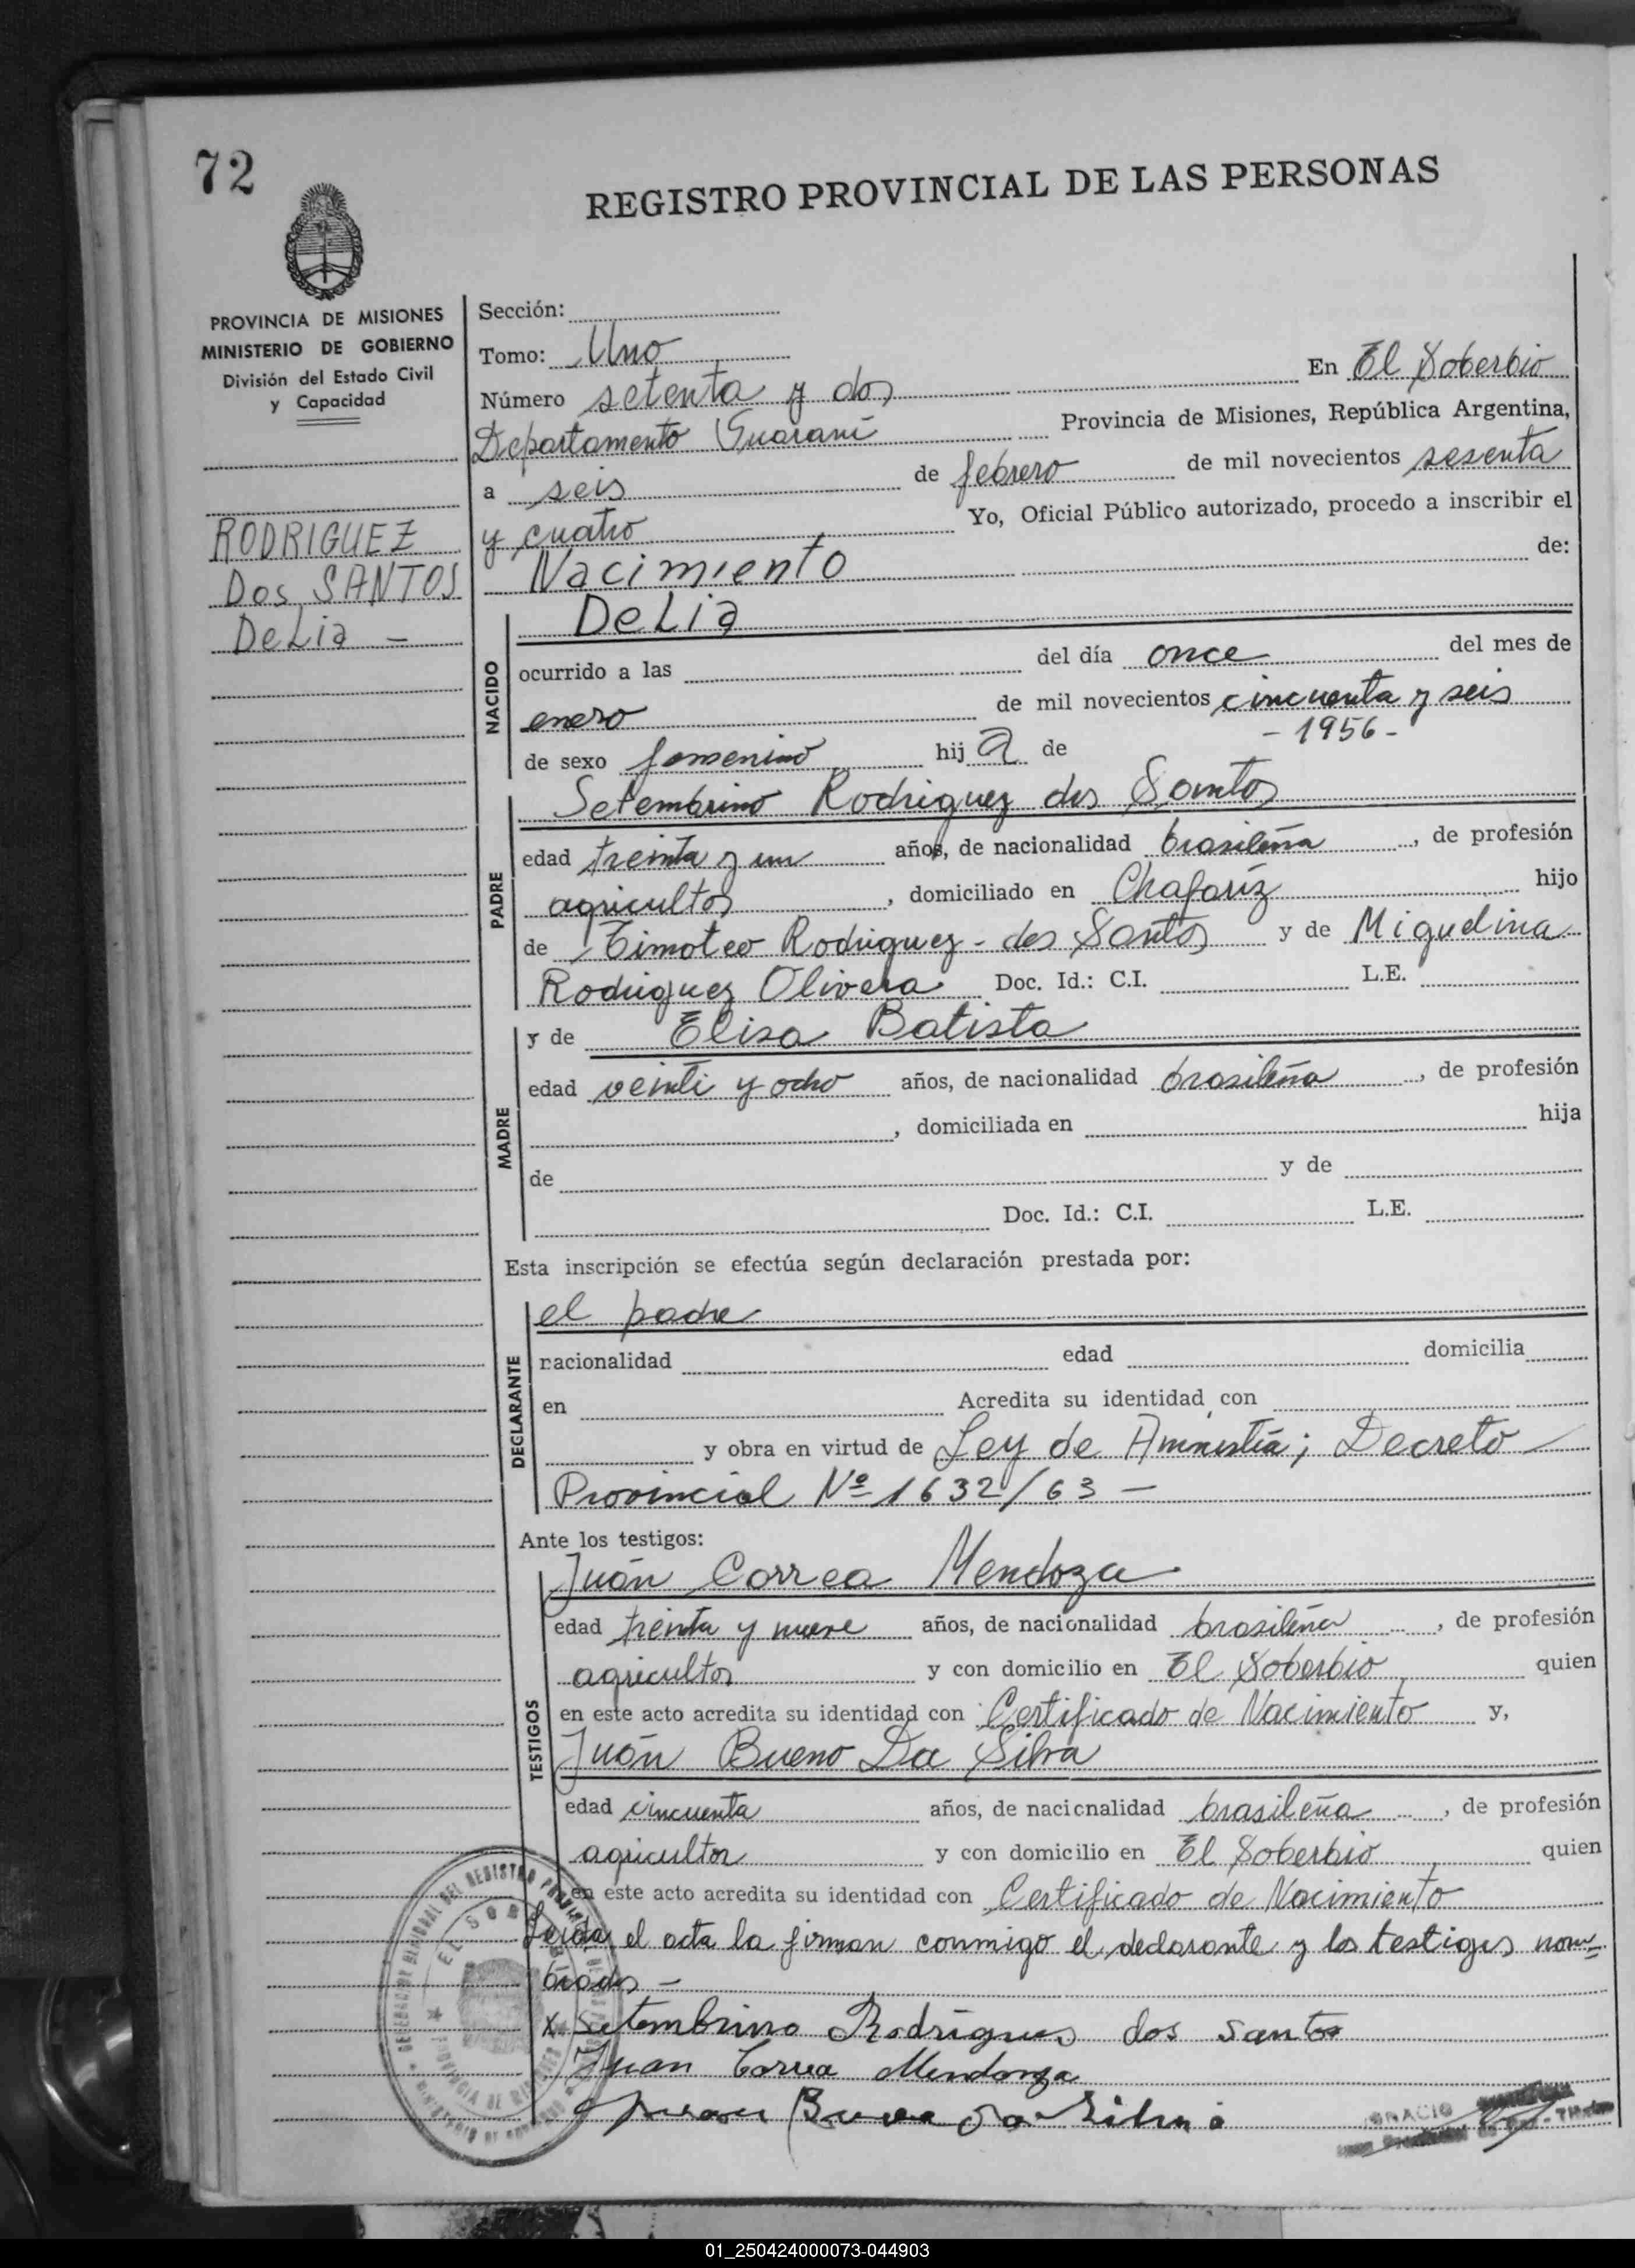 72
REGISTRO PROVINCIAL DE LAS PERSONAS
PROVINCIA DE MISIONES
MINISTERIO DE GOBIERNO
División del Estado Civil
y Capacidad
RODRIGUEZ
Dos SANTOS
DeLia -
Sección:
Tomo: Uno
En El Soberbio
Número setenta y dos
Departamento Guaraní Provincia de Misiones, República Argentina,
a seis de febrero de mil novecientos sesenta
y cuatro Yo, Oficial Público autorizado, procedo a inscribir el
Nacimiento de:
NACIDO
DeLia
ocurrido a las del día once del mes de
enero de mil novecientos cincuenta y seis
- 1956 -
de sexo femenino hij a de
PADRE
Setembrino Rodriguez dos Santos
edad treinta y un años, de nacionalidad brasileña, de profesión
agricultor, domiciliado en Chafariz hijo
de Timoteo Rodriguez - dos Santos y de Miguelina
Rodriguez Olivera Doc. Id.: C.I. L.E.
MADRE
y de Elisa Batista
edad veinti y ocho años, de nacionalidad brasileña, de profesión
, domiciliada en hija
de y de
Doc. Id.: C.I. L.E.
Esta inscripción se efectúa según declaración prestada por:
DECLARANTE
el padre
nacionalidad edad domicilia
en Acredita su identidad con
y obra en virtud de Ley de Amnistía; Decreto
Provincial Nº 1632/63 -
Ante los testigos:
TESTIGOS
Juán Correa Mendoza
edad treinta y nueve años, de nacionalidad brasileña, de profesión
agricultor y con domicilio en El Soberbio quien
en este acto acredita su identidad con Certificado de Nacimiento y,
Juán Bueno Da Silva
edad cincuenta años, de nacionalidad brasileña, de profesión
agricultor y con domicilio en El Soberbio quien
en este acto acredita su identidad con Certificado de Nacimiento
Leida el acta la firman conmigo el declarante y los testigos nom=
brados -
X Setembrino Rodrigues dos Santos
Juan Correa Mendonza
Juan Bueno da Silva
EL SOBERBIO
IGNACIO
01_250424000073-044903